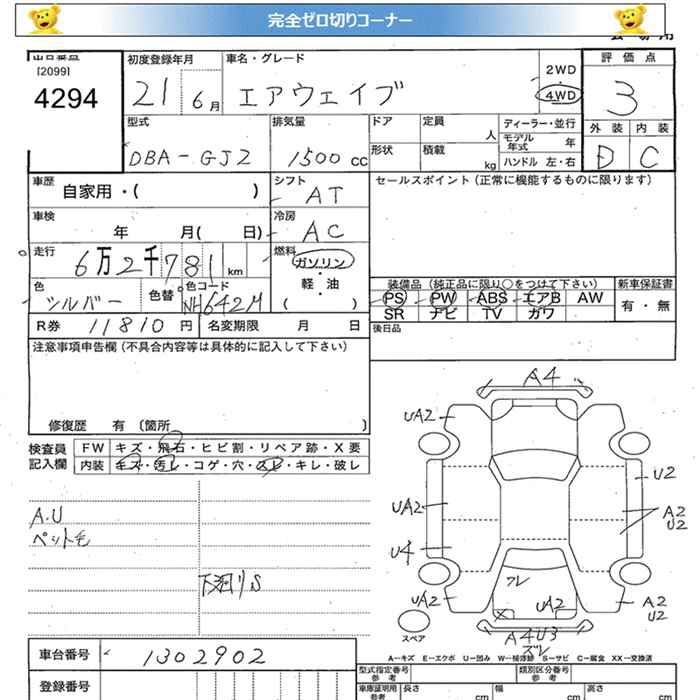 完全ゼロ切りコーナー
出品番号
[2099]
4294
初度登録年月
21 6月
車名・グレード
エアウェイブ
2WD
4WD
評価点
3
外装 内装
D C
型式
DBA-GJ2
排気量
1500 cc
ドア
定員
人
形状
積載
kg
ディーラー・並行
モデル年式 年
ハンドル 左・右
車歴
自家用・( )
シフト
AT
セールスポイント(正常に機能するものに限ります)
車検
年 月( 日)
冷房
AC
走行
6万2千781 km
燃料
ガソリン
軽・油
( )
色
シルバー
色替
色コード
NH642M
装備品(純正品に限り○をつけて下さい)
PS PW ABS エアB AW
SR ナビ TV ガワ
新車保証書
有・無
R券 11810 円
名変期限 月 日
後日品
注意事項申告欄(不具合内容等は具体的に記入して下さい)
修復歴 有〔箇所 〕
検査員記入欄
FW キズ・飛石・ヒビ割・リペア跡・X要
内装 キズ・汚レ・コゲ・穴・スレ・キレ・破レ
A.U
ペット毛
下廻りS
A4
UA2
U2
UA2
A2
U2
U4
フレ
UA2
UA2
A2
U2
スペア
A4U3
ズレ
A-キズ E-エクボ U-凹み W-補修跡 S-サビ C-腐食 XX-交換済
車台番号
1302902
登録番号
型式指定番号
参考
類別区分番号
参考
車庫証明用
参考
長さ
cm
幅
cm
高さ
cm